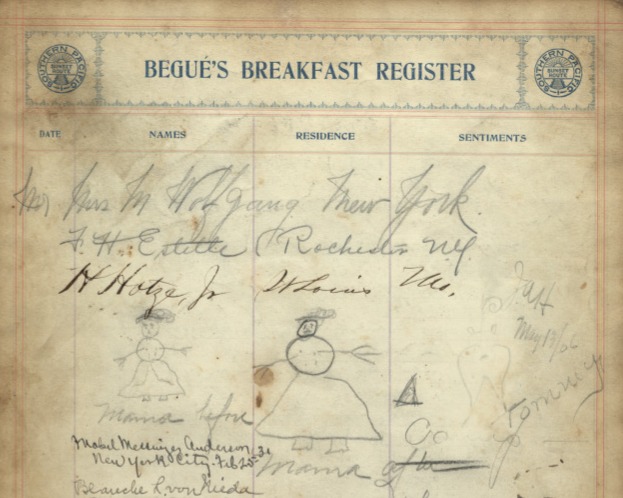 SOUTHERN PACIFIC
SUNSET ROUTE
BEGUÉ'S BREAKFAST REGISTER
SOUTHERN PACIFIC
SUNSET ROUTE
DATE NAMES RESIDENCE SENTIMENTS
Mrs M Wolfgang New York.
F. H. Estelle Rochester N.Y.
H Hotze, Jr St Louis Mo.
May 13/06
Tommy
Mama before
Mama after
Mabel Messinger Anderson
New York City. Feb 25
Blanche L. von